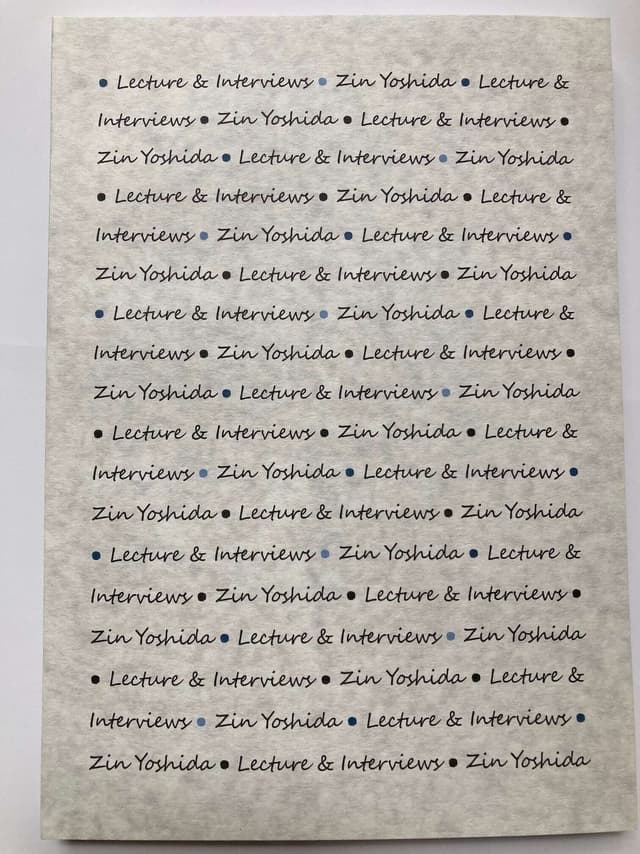 • Lecture & Interviews • Zin Yoshida • Lecture &
Interviews • Zin Yoshida • Lecture & Interviews •
Zin Yoshida • Lecture & Interviews • Zin Yoshida
• Lecture & Interviews • Zin Yoshida • Lecture &
Interviews • Zin Yoshida • Lecture & Interviews •
Zin Yoshida • Lecture & Interviews • Zin Yoshida
• Lecture & Interviews • Zin Yoshida • Lecture &
Interviews • Zin Yoshida • Lecture & Interviews •
Zin Yoshida • Lecture & Interviews • Zin Yoshida
• Lecture & Interviews • Zin Yoshida • Lecture &
Interviews • Zin Yoshida • Lecture & Interviews •
Zin Yoshida • Lecture & Interviews • Zin Yoshida
• Lecture & Interviews • Zin Yoshida • Lecture &
Interviews • Zin Yoshida • Lecture & Interviews •
Zin Yoshida • Lecture & Interviews • Zin Yoshida
• Lecture & Interviews • Zin Yoshida • Lecture &
Interviews • Zin Yoshida • Lecture & Interviews •
Zin Yoshida • Lecture & Interviews • Zin Yoshida